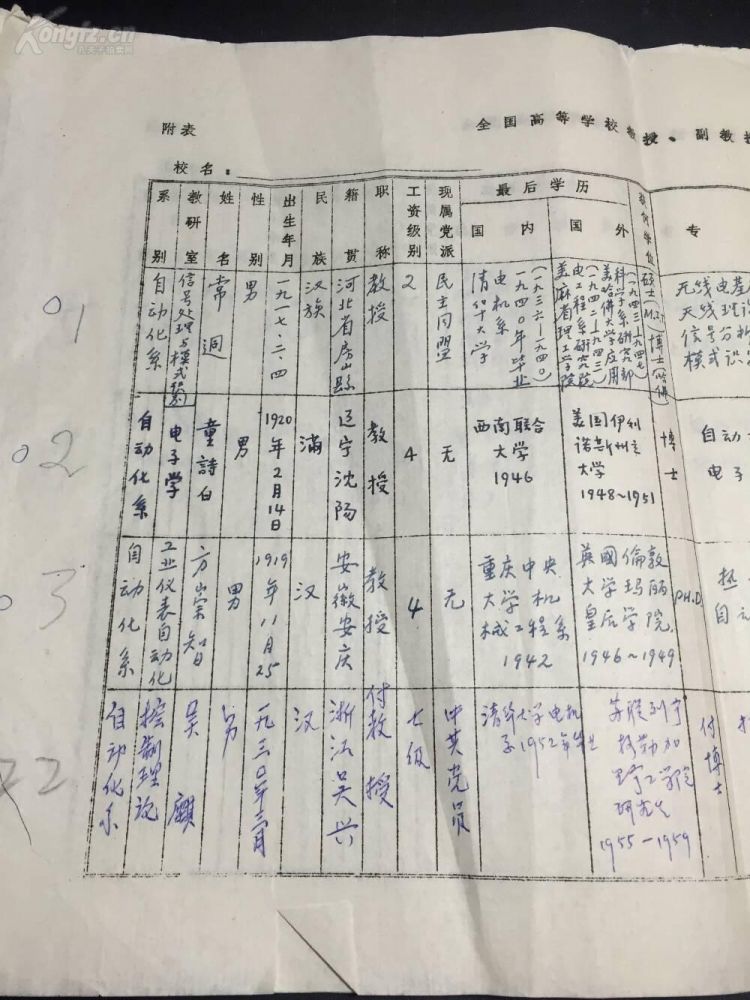 Kongfz.cn
孔夫子拍卖网
附表
全国高等学校教授、副教授
校名:
系别
教研室
姓名
性别
出生年月
民族
籍贯
职称
工资级别
现属党派
最后学历
国内
国外
专
01
自动化系
信号处理与模式识别
常迵
男
一九一七.二.四
汉族
河北省房山縣
教授
2
民主同盟
清华大学
电机系
一九四〇年毕业
(一九三六—一九四〇)
美麻省理工学院
电工程系研究院
(一九四二—一九四三)
美哈佛大学应用
科学系研究部
(一九四三—一九四七)
硕士(M.I.T)
博士(哈佛)
无线电基
天线理论
信号分析
模式识
02
自动化系
电子学
童詩白
男
1920年2月14日
满
辽宁沈阳
教授
4
无
西南联合
大学
1946
美国伊利
诺斯州立
大学
1948~1951
博士
自动
电子
03
自动化系
工业仪表自动化
方崇智
男
1919年11月25
汉
安徽安庆
教授
4
无
重庆中央
大学机
械工程系
1942
英國倫敦
大学玛丽
皇后学院
1946~1949
PH.D
热
自动
22
自动化系
控制理论
吴麒
男
一九三〇年三月
汉
浙江吴兴
付教授
七级
中共党员
清华大学电机
系1952年毕业
苏联列宁
格勒加
里宁工学院
研究生
1955-1959
付博士